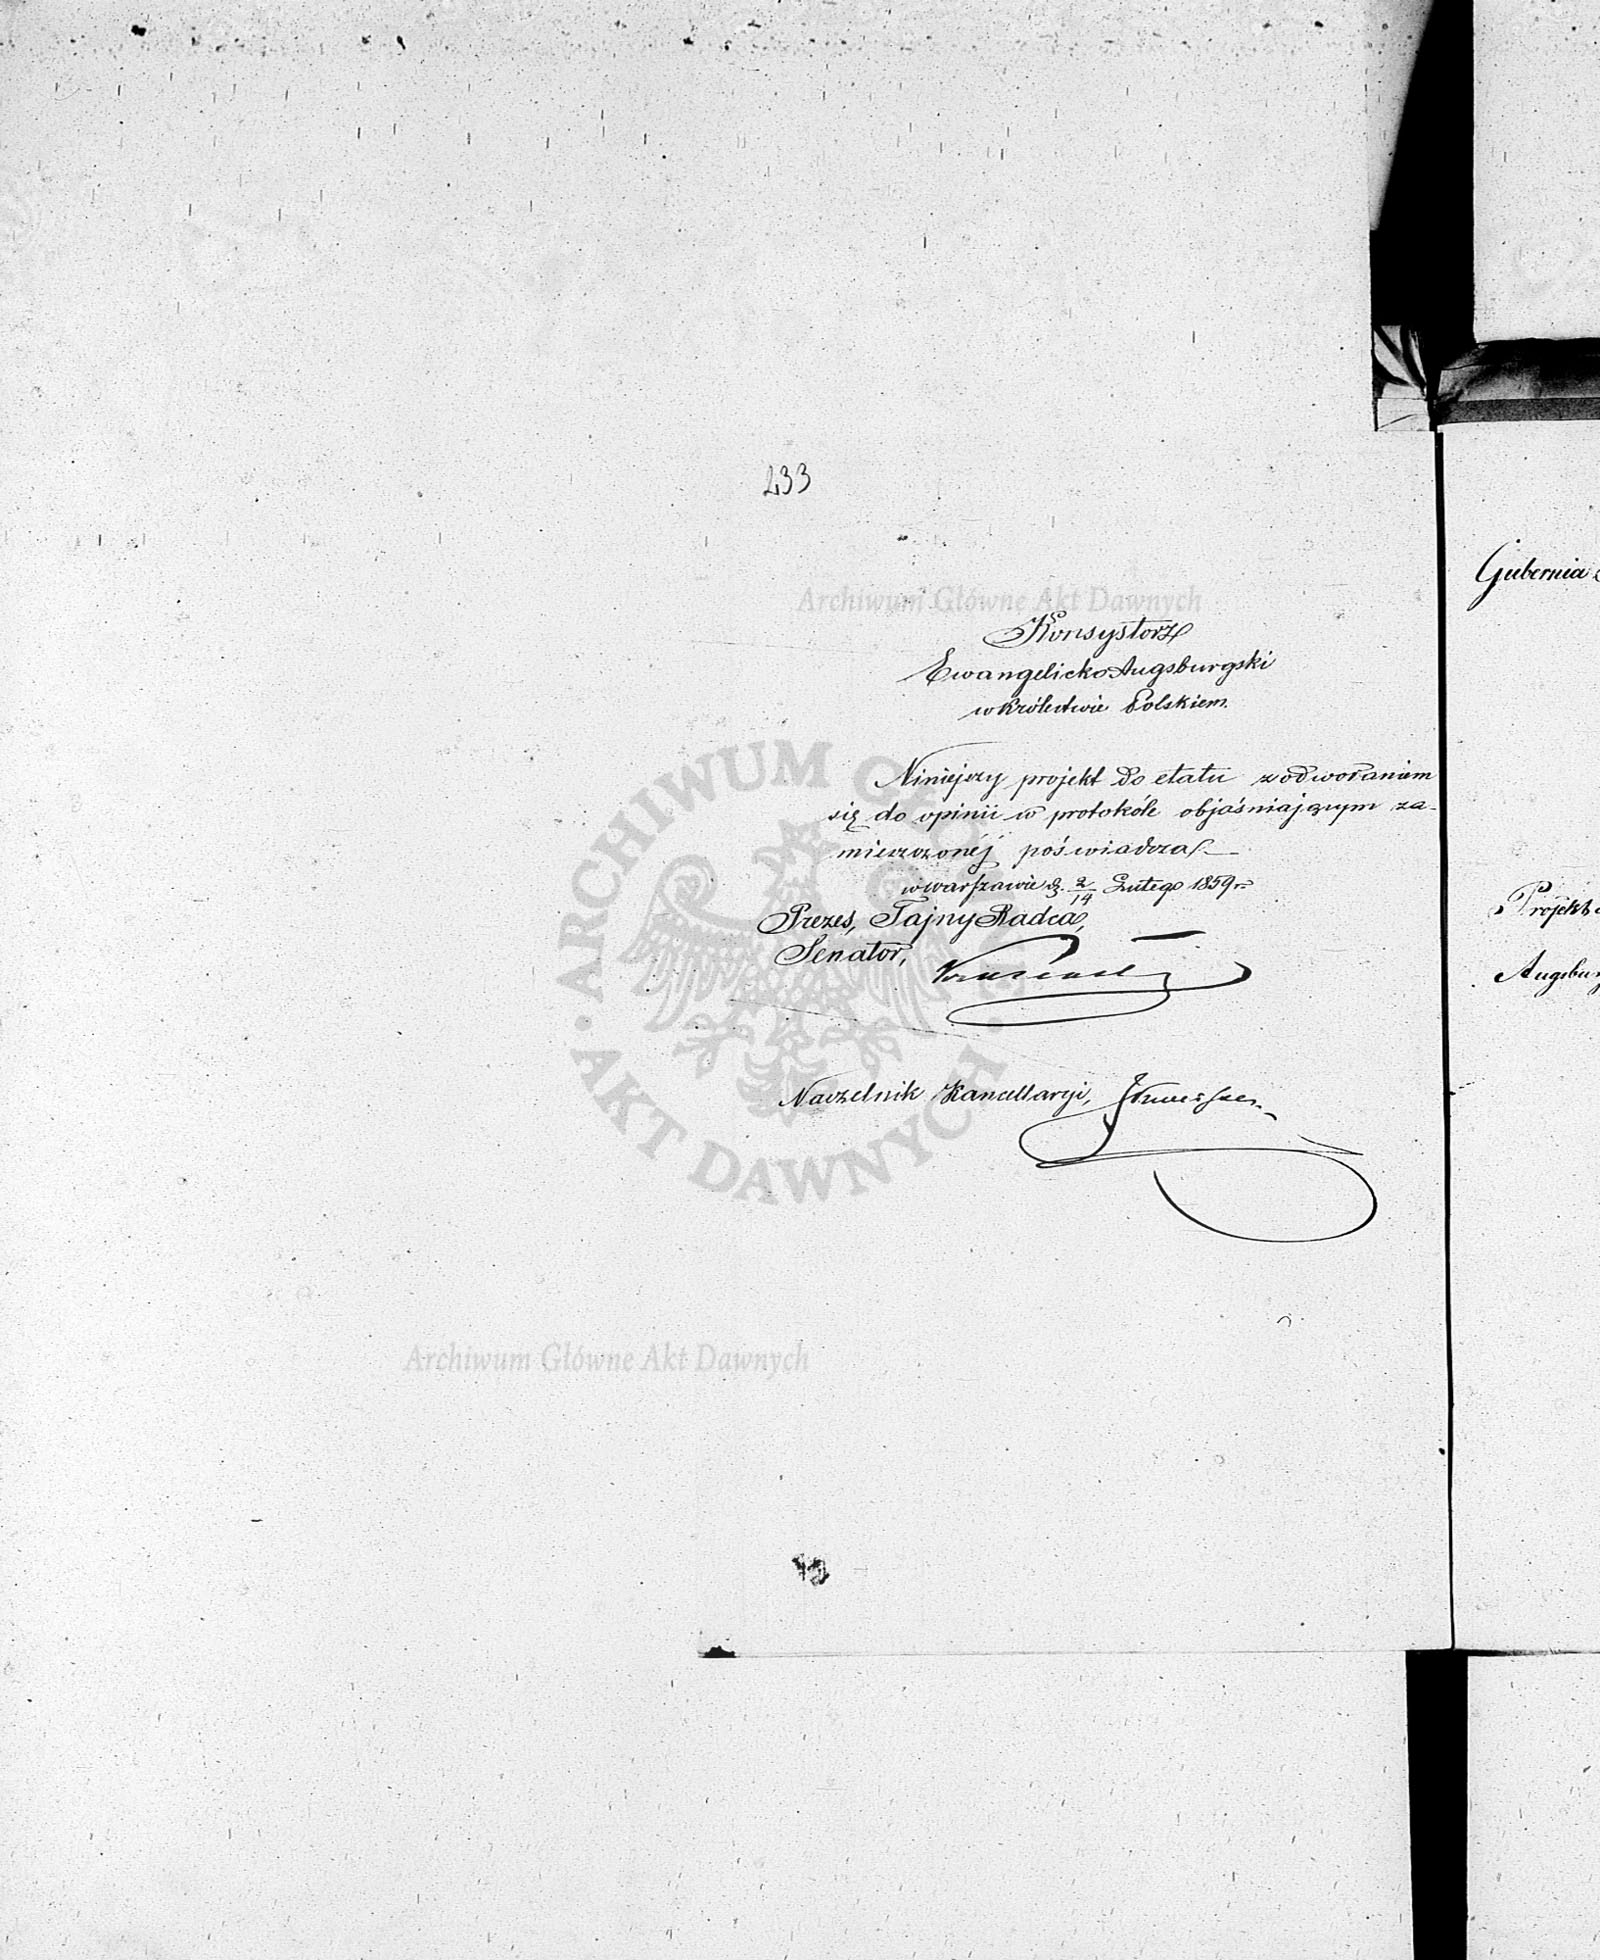 233
Archiwum Główne Akt Dawnych
Konsystorz
Ewangelicko Augsburgski
w Królestwie Polskiem.
Niniejszy projekt do etatu z odwołaniem
się do opinii w protokóle objaśniającym za-
mieszczonéj poświadcza
w Warszawie d. 2/14 Lutego 1859 r.
Prezes, Tajny Radca,
Senator,
Naczelnik Kancellaryi,
ARCHIWUM GŁÓWNE · AKT DAWNYCH ·
Archiwum Główne Akt Dawnych
Gubernia
Projekt
Augsbur